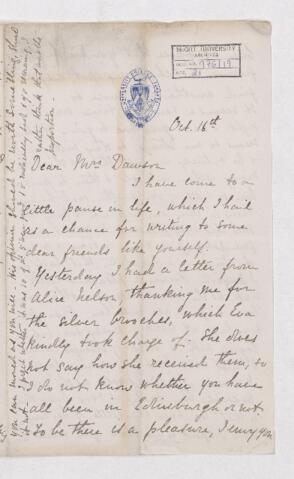 McGILL UNIVERSITY
ARCHIVES
ACC. NO. 976/19
REF. 21
Oct. 16th
Dear Mrs Dawson
I have come to a
little pause in life, which I hail
as a chance for writing to some
dear friends like yourself.
Yesterday I had a letter from
Alice Nelson, thanking me for
the silver brooches, which Eva
kindly took charge of. She does
not say how she received them, so
I do not know whether you have
all been in Edinburgh or not.
To be there is a pleasure, I envy you
you can invest as you will. His opinion should be worth something.
I forget whether it was 10 or
rather think that was the
proportion.